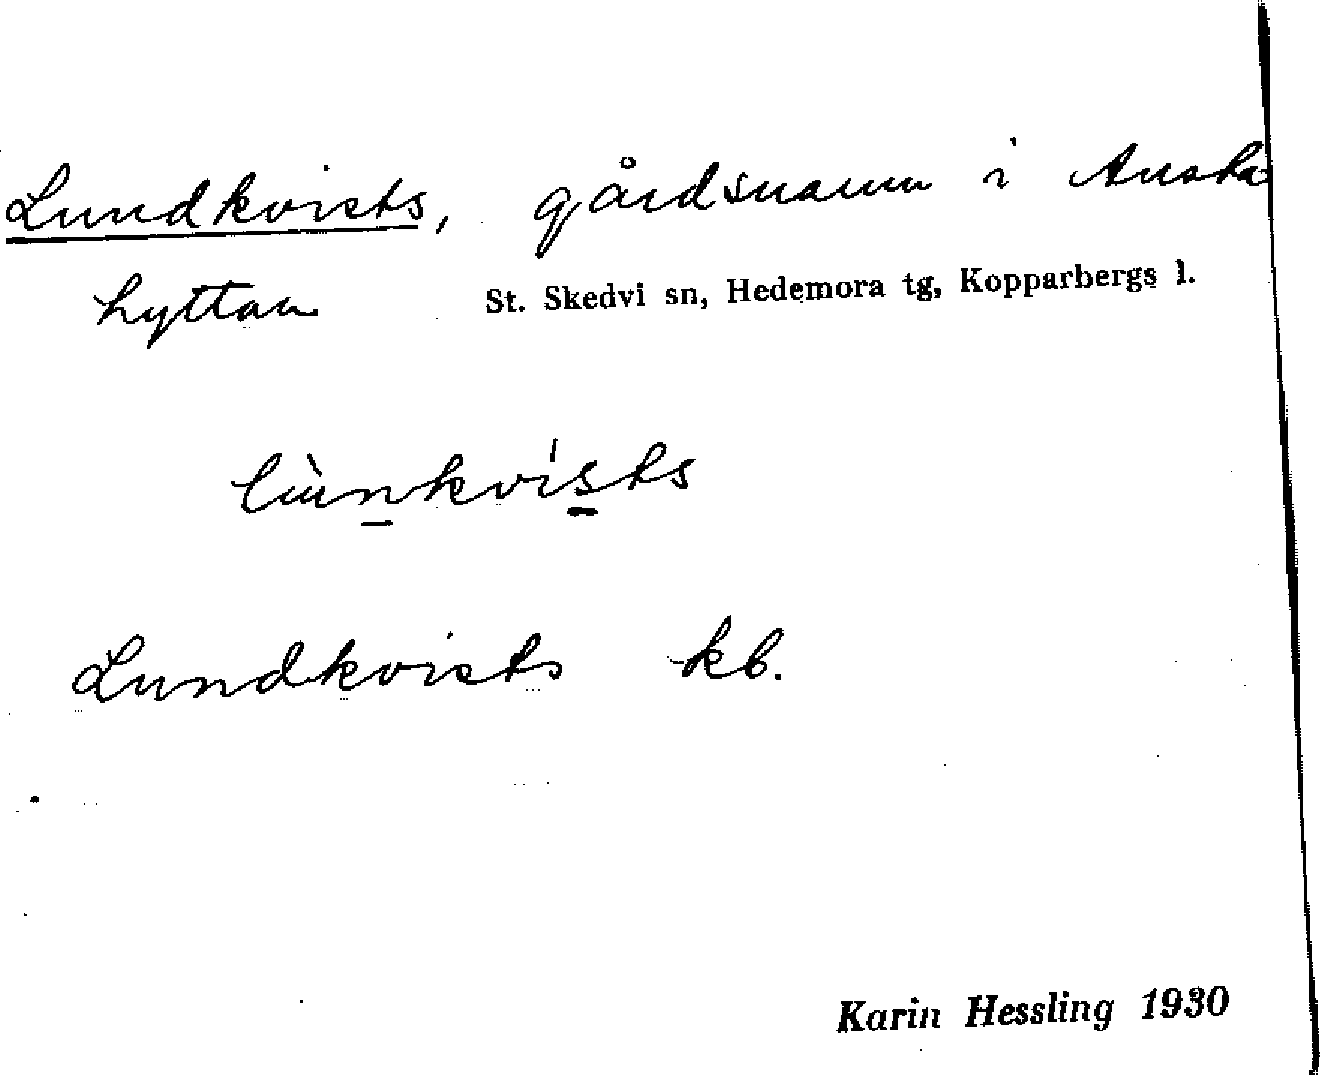 Lundkvists, gårdsnamn i Ansta
hyttan St. Skedvi sn, Hedemora tg, Kopparbergs l.
lùnkvísts
Lundkvists kb.
Karin Hessling 1930